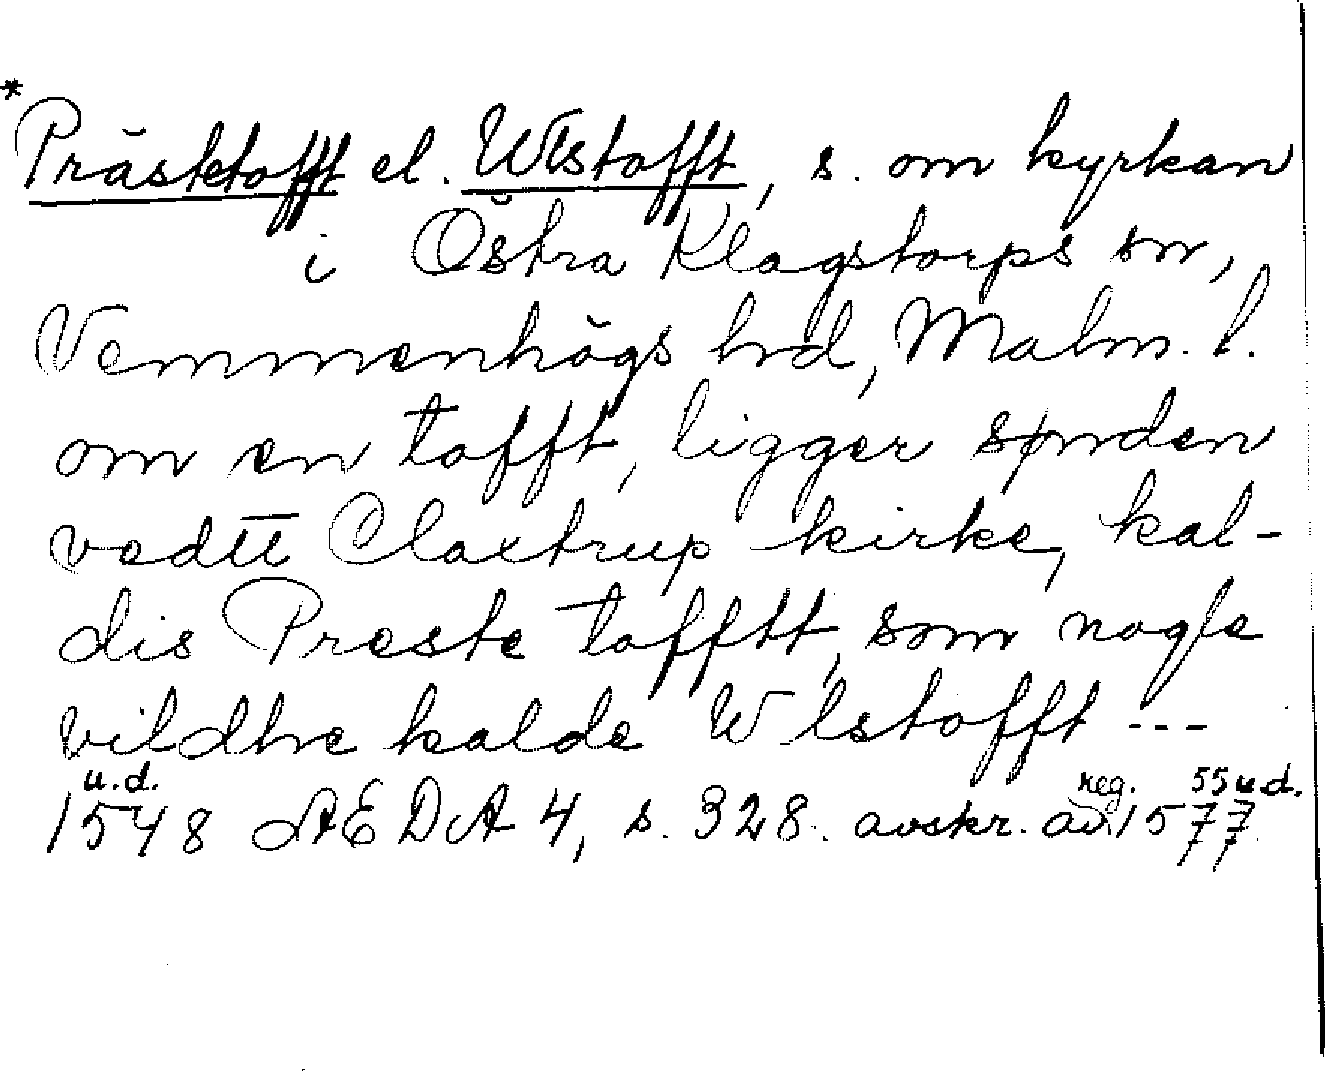 *Präs​ktofft el. Wlstofft, s. om kyrkan
i Östra Klagstorps sn,
Vemmenhögs hrd, Malm. l.
om en tofft, ligger sønden
vedtt Claxtrup kirke, kal-
dis Preste tofftt, som nogle
vildhe kalde Wlstofft ---
u.d. reg. 55 u.d.
1548 AEDA 4, s. 328. avskr. av 1577.